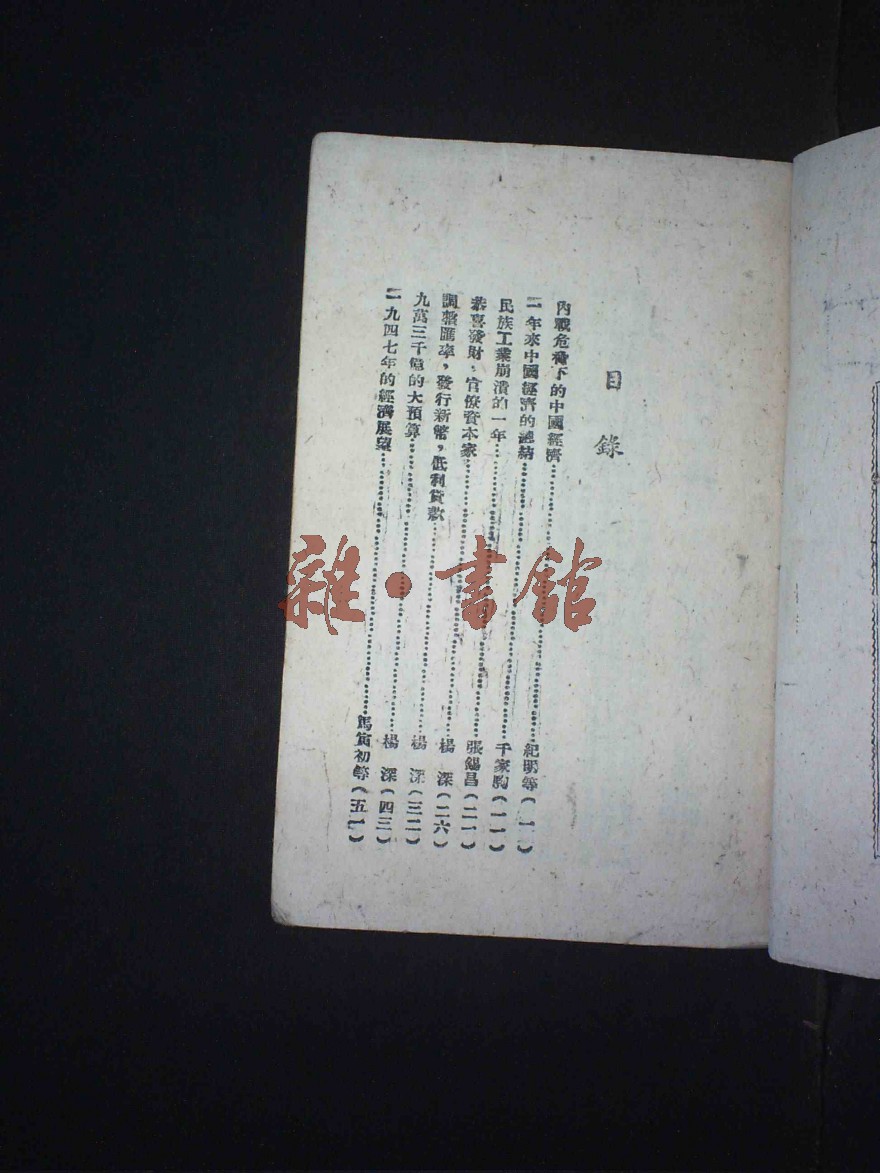 目錄
內戰危機下的中國經濟……紀明等(一)
一年來中國經濟的總結……千家駒(一一)
民族工業崩潰的一年……張錫昌(二一)
恭喜發財，官僚資本家……楊　深(二六)
調整匯率，發行新幣，低利貸款……楊　深(三二)
九萬三千億的大預算……楊　深(四三)
一九四七年的經濟展望……馬寅初等(五一)
雜·書館